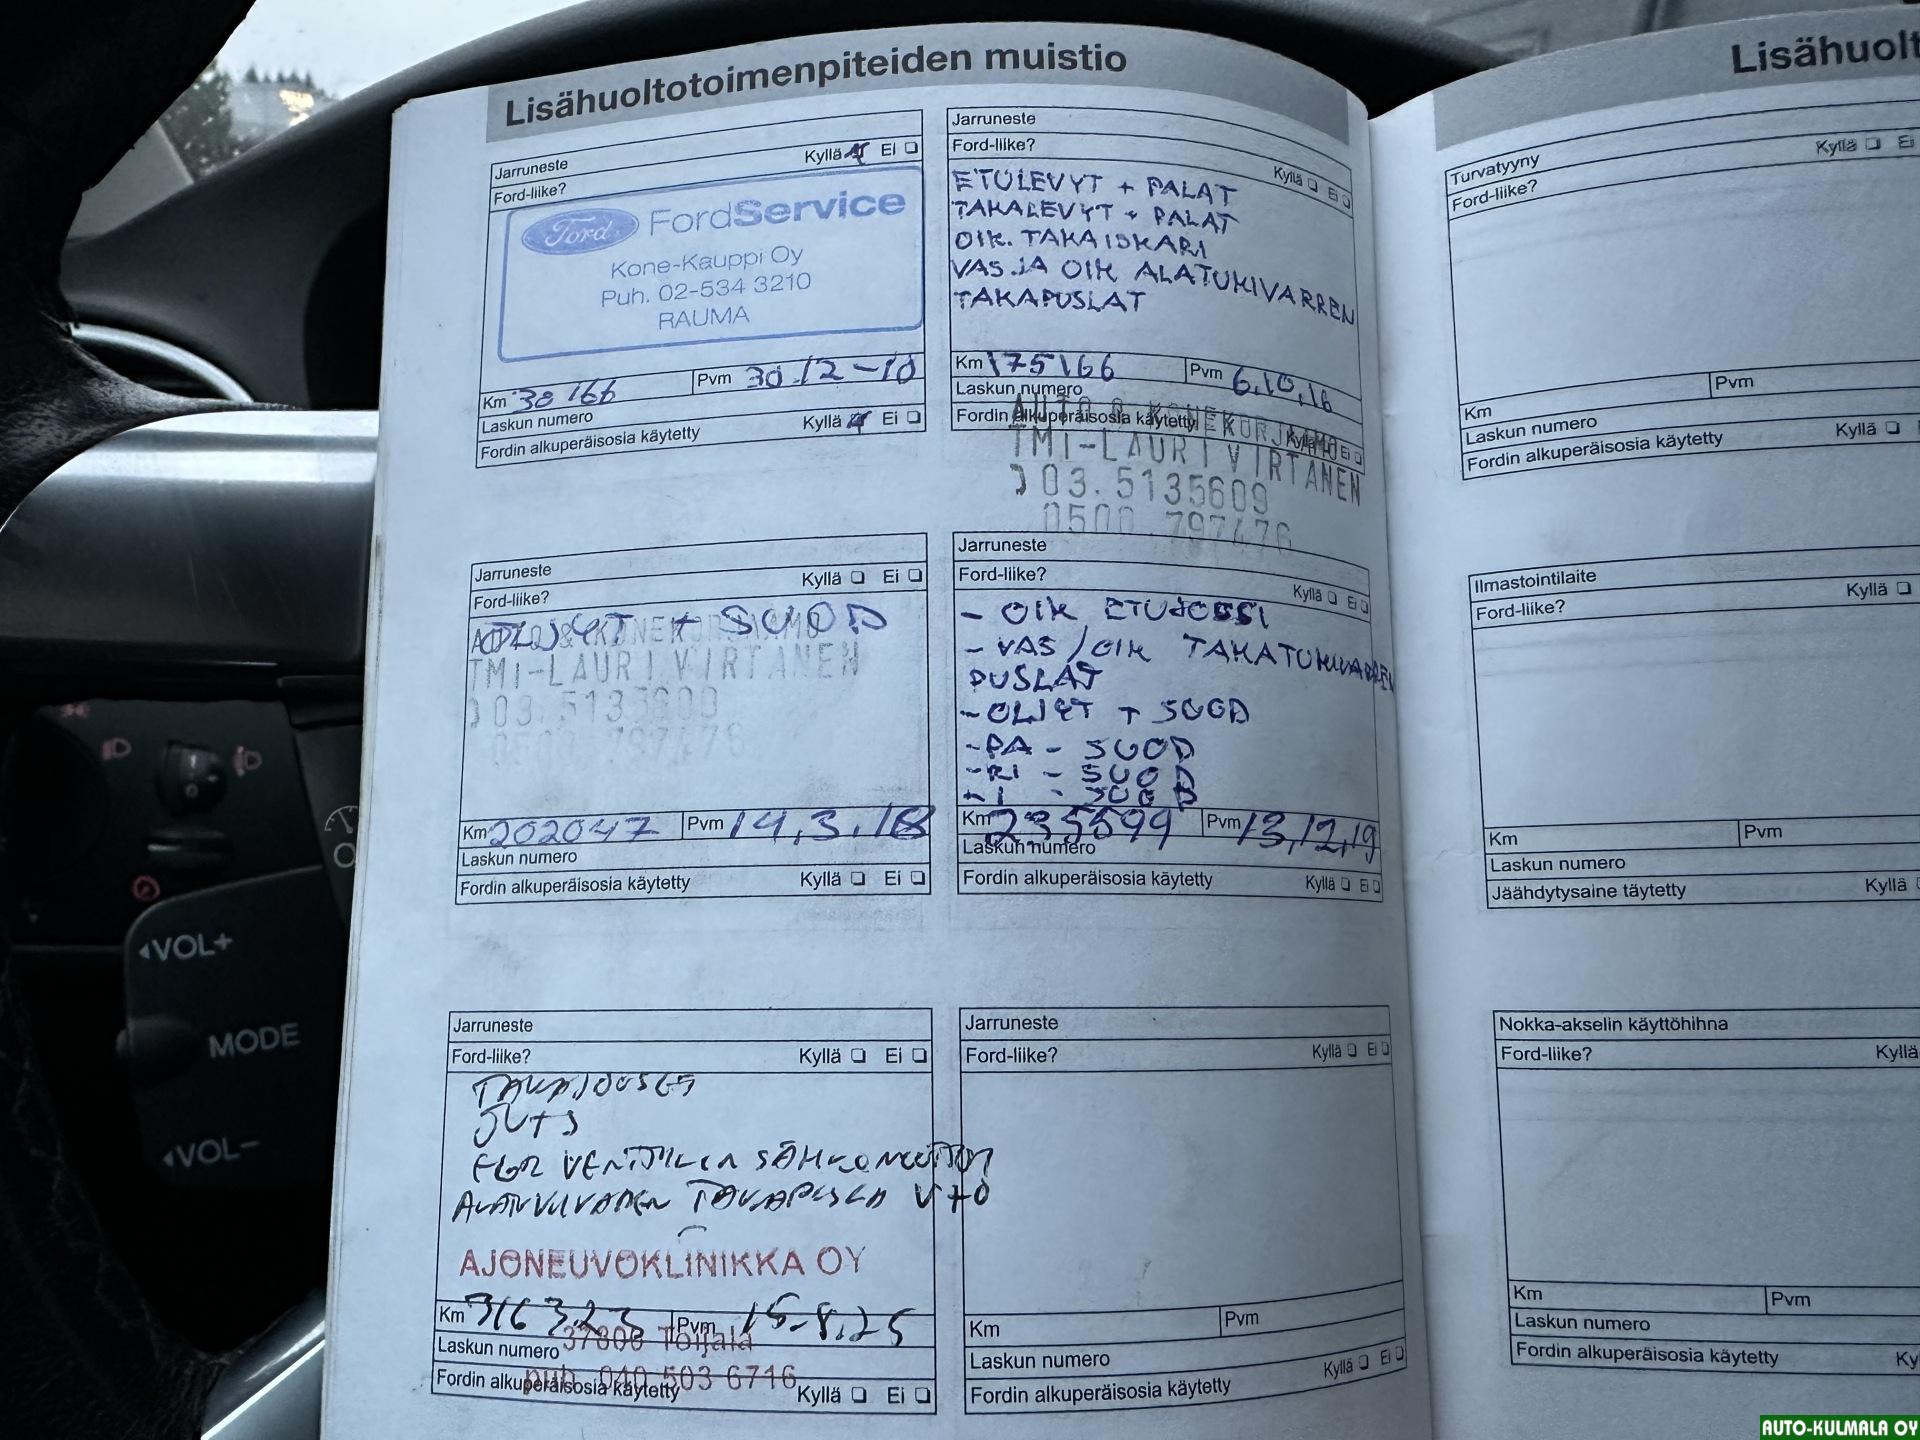 Lisähuoltotoimenpiteiden muistio
Jarruneste
Ford-liike? Kyllä Ei
Ford FordService
Kone-Kauppi Oy
Puh. 02-534 3210
RAUMA
Km 30166 Pvm 30.12-10
Laskun numero
Fordin alkuperäisosia käytetty Kyllä Ei
Jarruneste
Ford-liike? Kyllä Ei
ETULEVYT + PALAT
TAKALEVYT + PALAT
OIK. TAKAISKARI
VAS JA OIK ALATUKIVARREN
TAKAPUSLAT
Km 175166 Pvm 6.10.16
Laskun numero
Fordin alkuperäisosia käytetty Kyllä Ei
AUTO & KONEKORJAAMO
TMI-LAURI VIRTANEN
03.5135609
0500 797476
Jarruneste
Ford-liike? Kyllä Ei
ÖLJYT + SUOD
AUTO & KONEKORJAAMO
TMI-LAURI VIRTANEN
03.5135609
0500 797476
Km 202047 Pvm 14.3.18
Laskun numero
Fordin alkuperäisosia käytetty Kyllä Ei
Jarruneste
Ford-liike? Kyllä Ei
- OIK ETUJOUSI
- VAS/OIK TAKATUKIVARREN
PUSLAT
- ÖLJYT + SUOD
- PA - SUOD
- RI - SUOD
- I - SUOD
Km 235599 Pvm 13.12.19
Laskun numero
Fordin alkuperäisosia käytetty Kyllä Ei
Jarruneste
Ford-liike? Kyllä Ei
EGR VENTTIILIN
TAKAPUSLA
AJONEUVOKLINIKKA OY
Km 316323 Pvm 15.8.25
Laskun numero
37800 Toijala
puh. 040 503 6716
Fordin alkuperäisosia käytetty Kyllä Ei
Jarruneste
Ford-liike? Kyllä Ei
Km Pvm
Laskun numero
Fordin alkuperäisosia käytetty Kyllä Ei
Lisähuolt
Turvatyyny
Ford-liike? Kyllä Ei
Km Pvm
Laskun numero
Fordin alkuperäisosia käytetty Kyllä
Ilmastointilaite
Ford-liike? Kyllä
Km Pvm
Laskun numero
Jäähdytysaine täytetty Kyllä
Nokka-akselin käyttöhihna
Ford-liike? Kyllä
Km Pvm
Laskun numero
Fordin alkuperäisosia käytetty Ky
VOL+
MODE
VOL-
AUTO-KULMALA OY